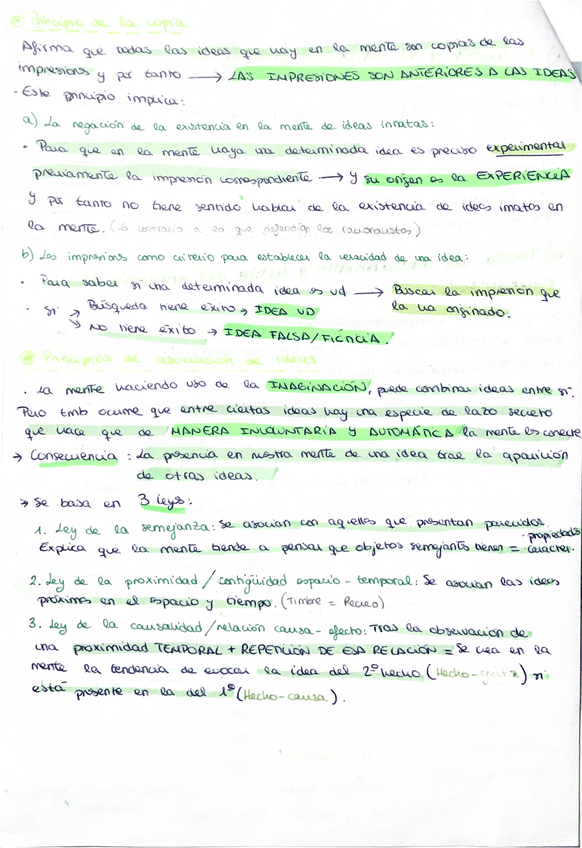 Principio de la copia
Afirma que todas las ideas que hay en la mente son copias de las
impresions y por tanto → LAS IMPRESIONES SON ANTERIORES A LAS IDEAS
· Este principio implica:
a) La negación de la existencia en la mente de ideas innatas:
· Para que en la mente haya una determinada idea es preciso experimentar
previamente la impresión correspondiente → y su origen es la EXPERIENCIA
y por tanto no tiene sentido hablar de la existencia de ideas innatas en
la mente. (lo contrario a lo que defendían los racionalistas)
b) Las impresions como criterio para establecer la veracidad de una idea:
· Para saber si una determinada idea es vd → Buscar la impresión que
la ha originado.
· Si → Búsqueda tiene éxito → IDEA VD
→ No tiene éxito → IDEA FALSA/FICTICIA.
Principios de asociación de ideas
· La mente haciendo uso de la IMAGINACIÓN, puede combinar ideas entre sí.
Pero tmb ocurre que entre ciertas ideas hay una especie de lazo secreto
que hace que de MANERA INVOLUNTARIA Y AUTOMÁTICA la mente las conecte
→ Consecuencia: La presencia en nuestra mente de una idea trae la aparición
de otras ideas.
→ Se basa en 3 leys:
1. Ley de la semejanza: Se asocian con aquellos que presentan parecidos.
Explica que la mente tiende a pensar que objetos semejants tienen = propiedads · caracter.
2. Ley de la proximidad / contigüidad espacio-temporal: Se asocian las ideas
próximas en el espacio y tiempo. (Timbre = Recreo)
3. Ley de la causalidad/relación causa-efecto: Tras la observación de
una proximidad TEMPORAL + REPETICIÓN DE ESA RELACIÓN = Se crea en la
mente la tendencia de evocar la idea del 2º hecho (Hecho-) si
está presente en la del 1º (Hecho-causa).